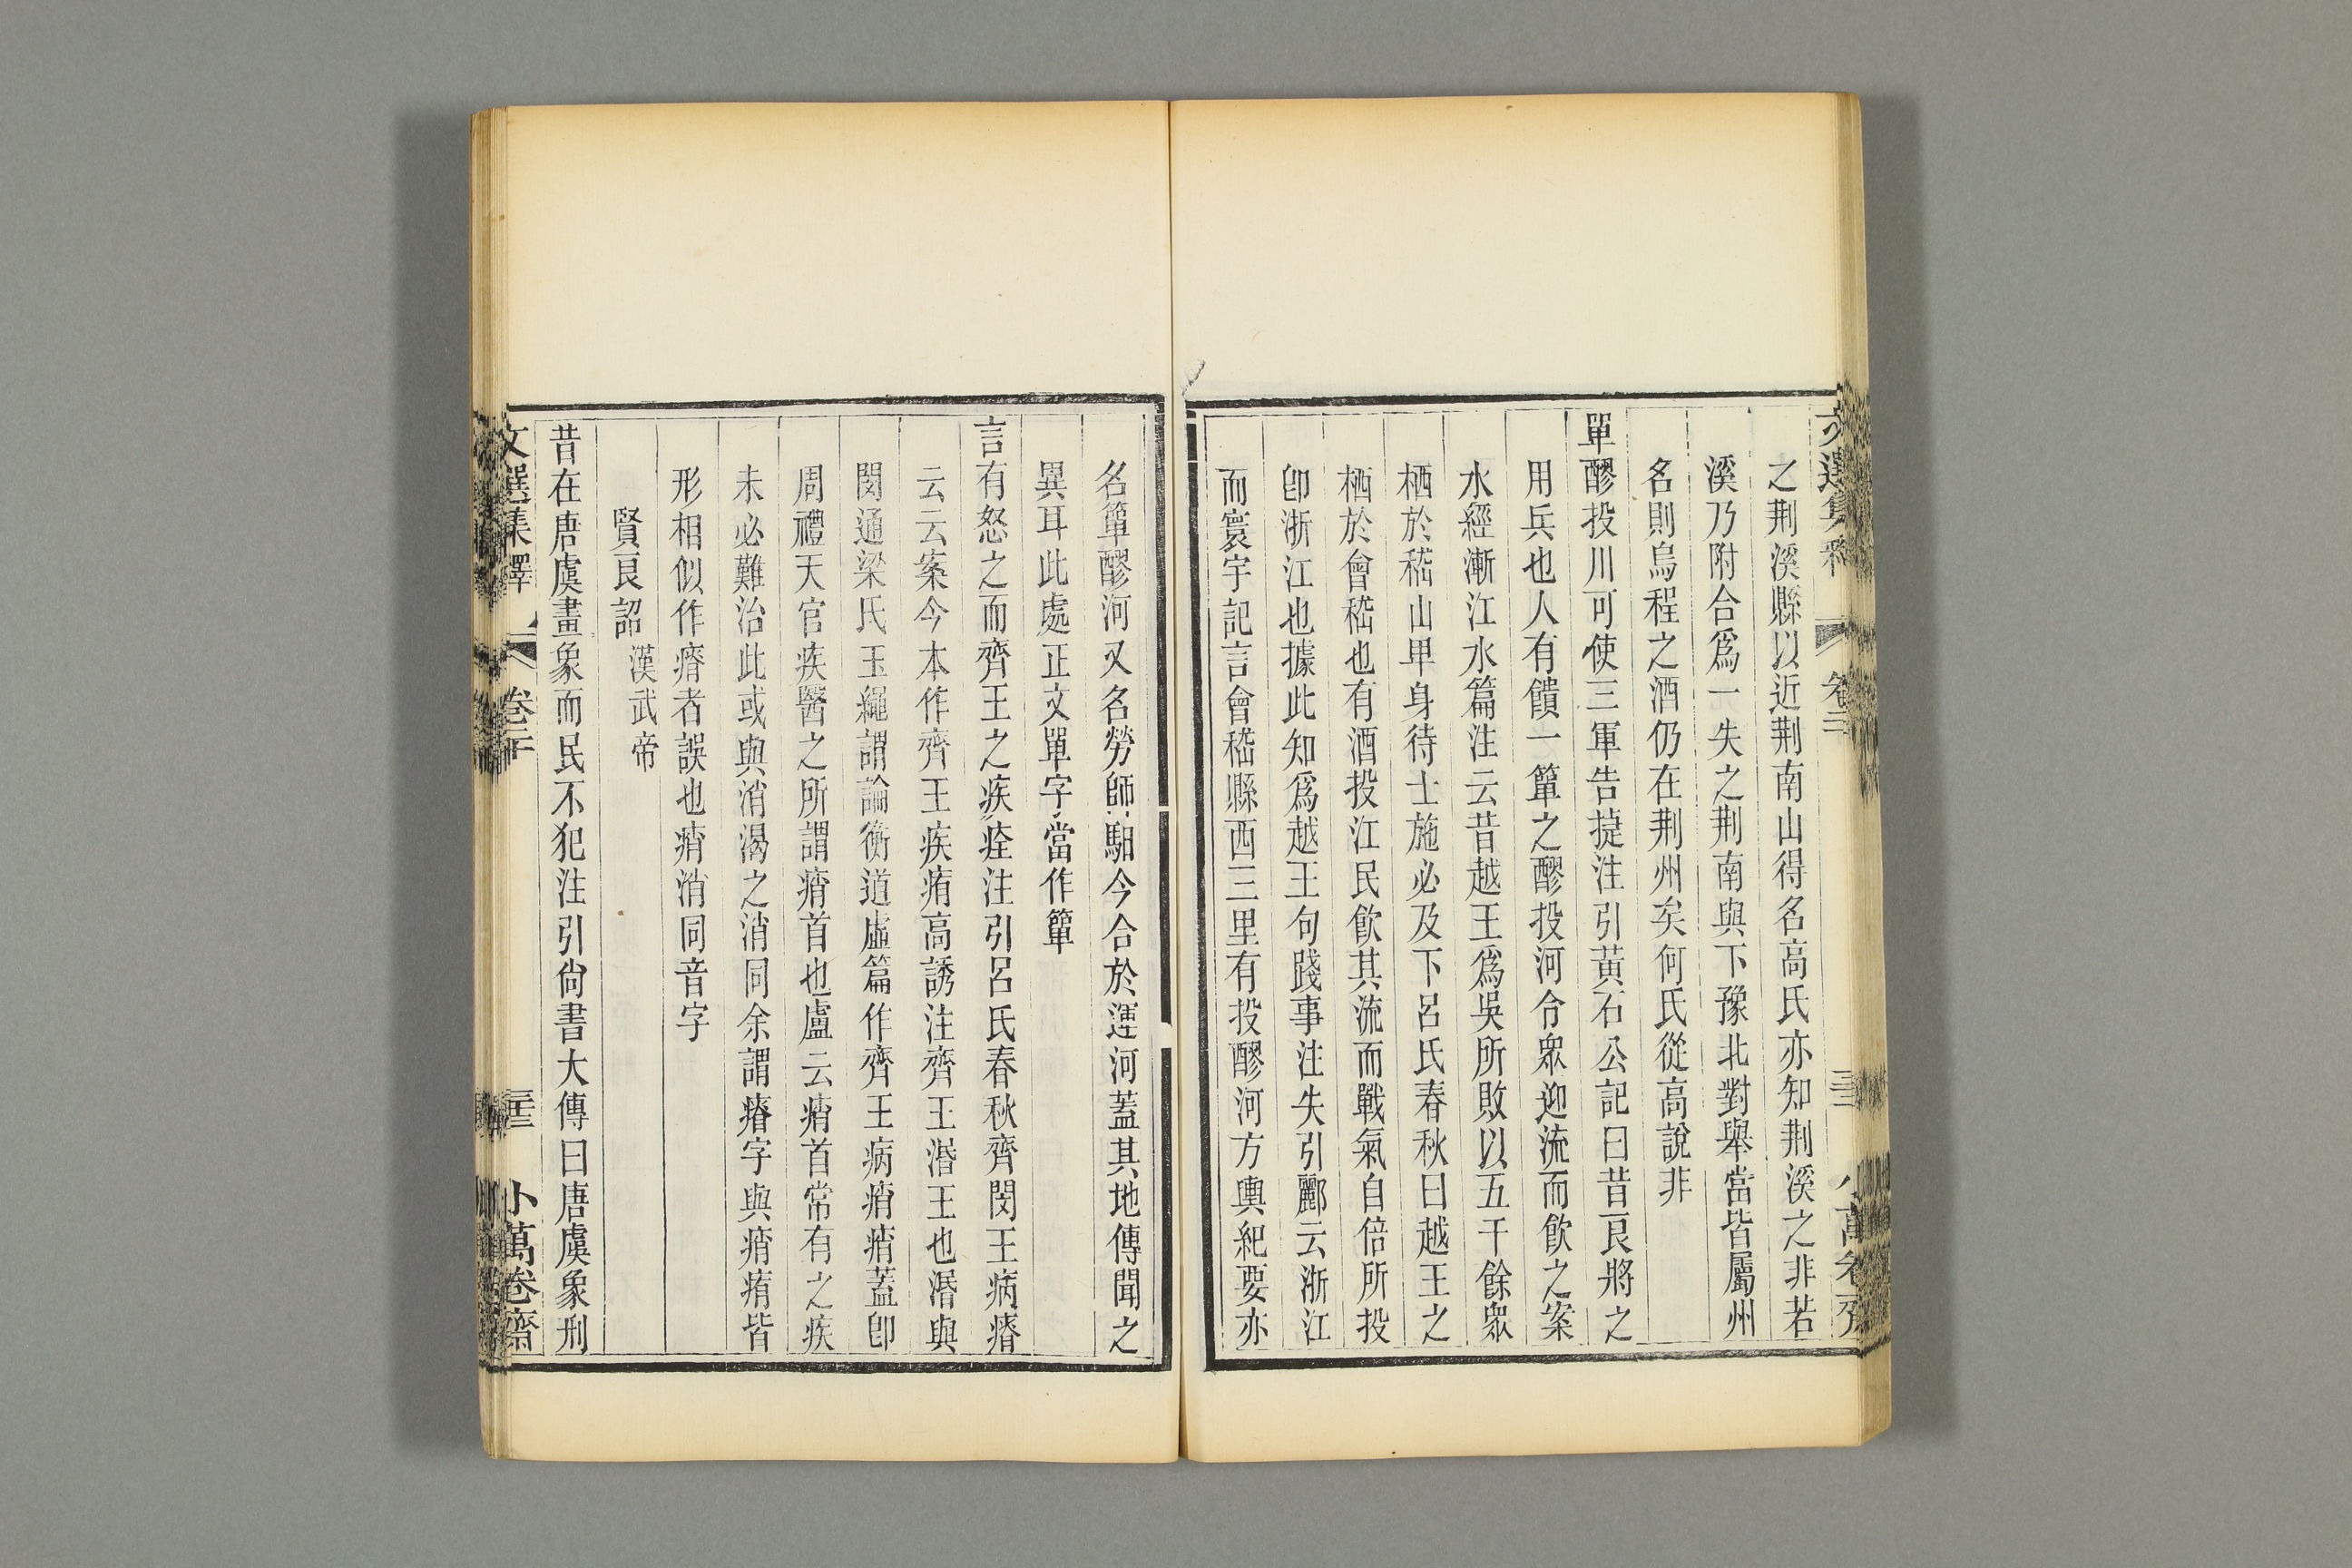 之荆溪縣以近荆南山得名高氏亦知荆溪之非若
溪乃附合爲一失之荆南與下豫北對舉當皆屬州
名則烏程之酒仍在荆州矣何氏從高說非
單醪投川可使三軍告捷注引黃石公記曰昔良將之
用兵也人有饋一簞之醪投河令眾迎流而飲之案
水經漸江水篇注云昔越王爲吳所敗以五千餘眾
栖於稽山卑身待士施必及下呂氏春秋曰越王之
栖於會稽也有酒投江民飲其流而戰氣自倍所投
卽浙江也據此知爲越王句踐事注失引酈云浙江
而寰宇記言會稽縣西三里有投醪河方輿紀要亦
名簞醪河又名勞師今合於運河蓋其地傳聞之
異耳此處正文單字當作簞
言有怒之而齊王之疾痊注引呂氏春秋齊閔王病瘠
云云案今本作齊王疾痏高誘注齊王湣王也湣與
閔通梁氏玉繩謂論衡道虛篇作齊王病痟痟蓋卽
周禮天官疾醫之所謂痟首也盧云痟首常有之疾
未必難治此或與消渴之消同余謂瘠字與痟痏皆
形相似作瘠者誤也痟消同音字
賢良詔 漢武帝
昔在唐虞畫象而民不犯注引尙書大傳曰唐虞象刑
文選集釋 卷二十 小萬卷齋